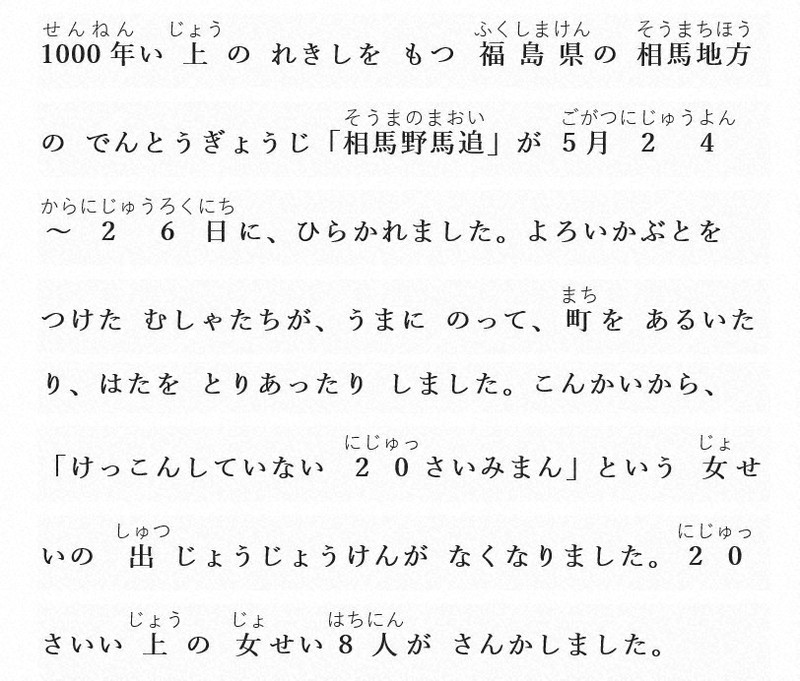 せんねん じょう ふくしまけん そうまちほう
1000年い上の れきしを もつ 福島県の 相馬地方
そうまのまおい ごがつにじゅうよん
の でんとうぎょうじ「相馬野馬追」が 5月 2 4
からにじゅうろくにち
～ 2 6 日に、ひらかれました。よろいかぶとを
まち
つけた むしゃたちが、うまに のって、町を あるいた
り、はたを とりあったり しました。こんかいから、
にじゅっ じょ
「けっこんしていない 2 0さいみまん」という 女せ
しゅつ にじゅっ
いの 出じょうじょうけんが なくなりました。2 0
じょう じょ はちにん
さいい上の 女せい8人が さんかしました。